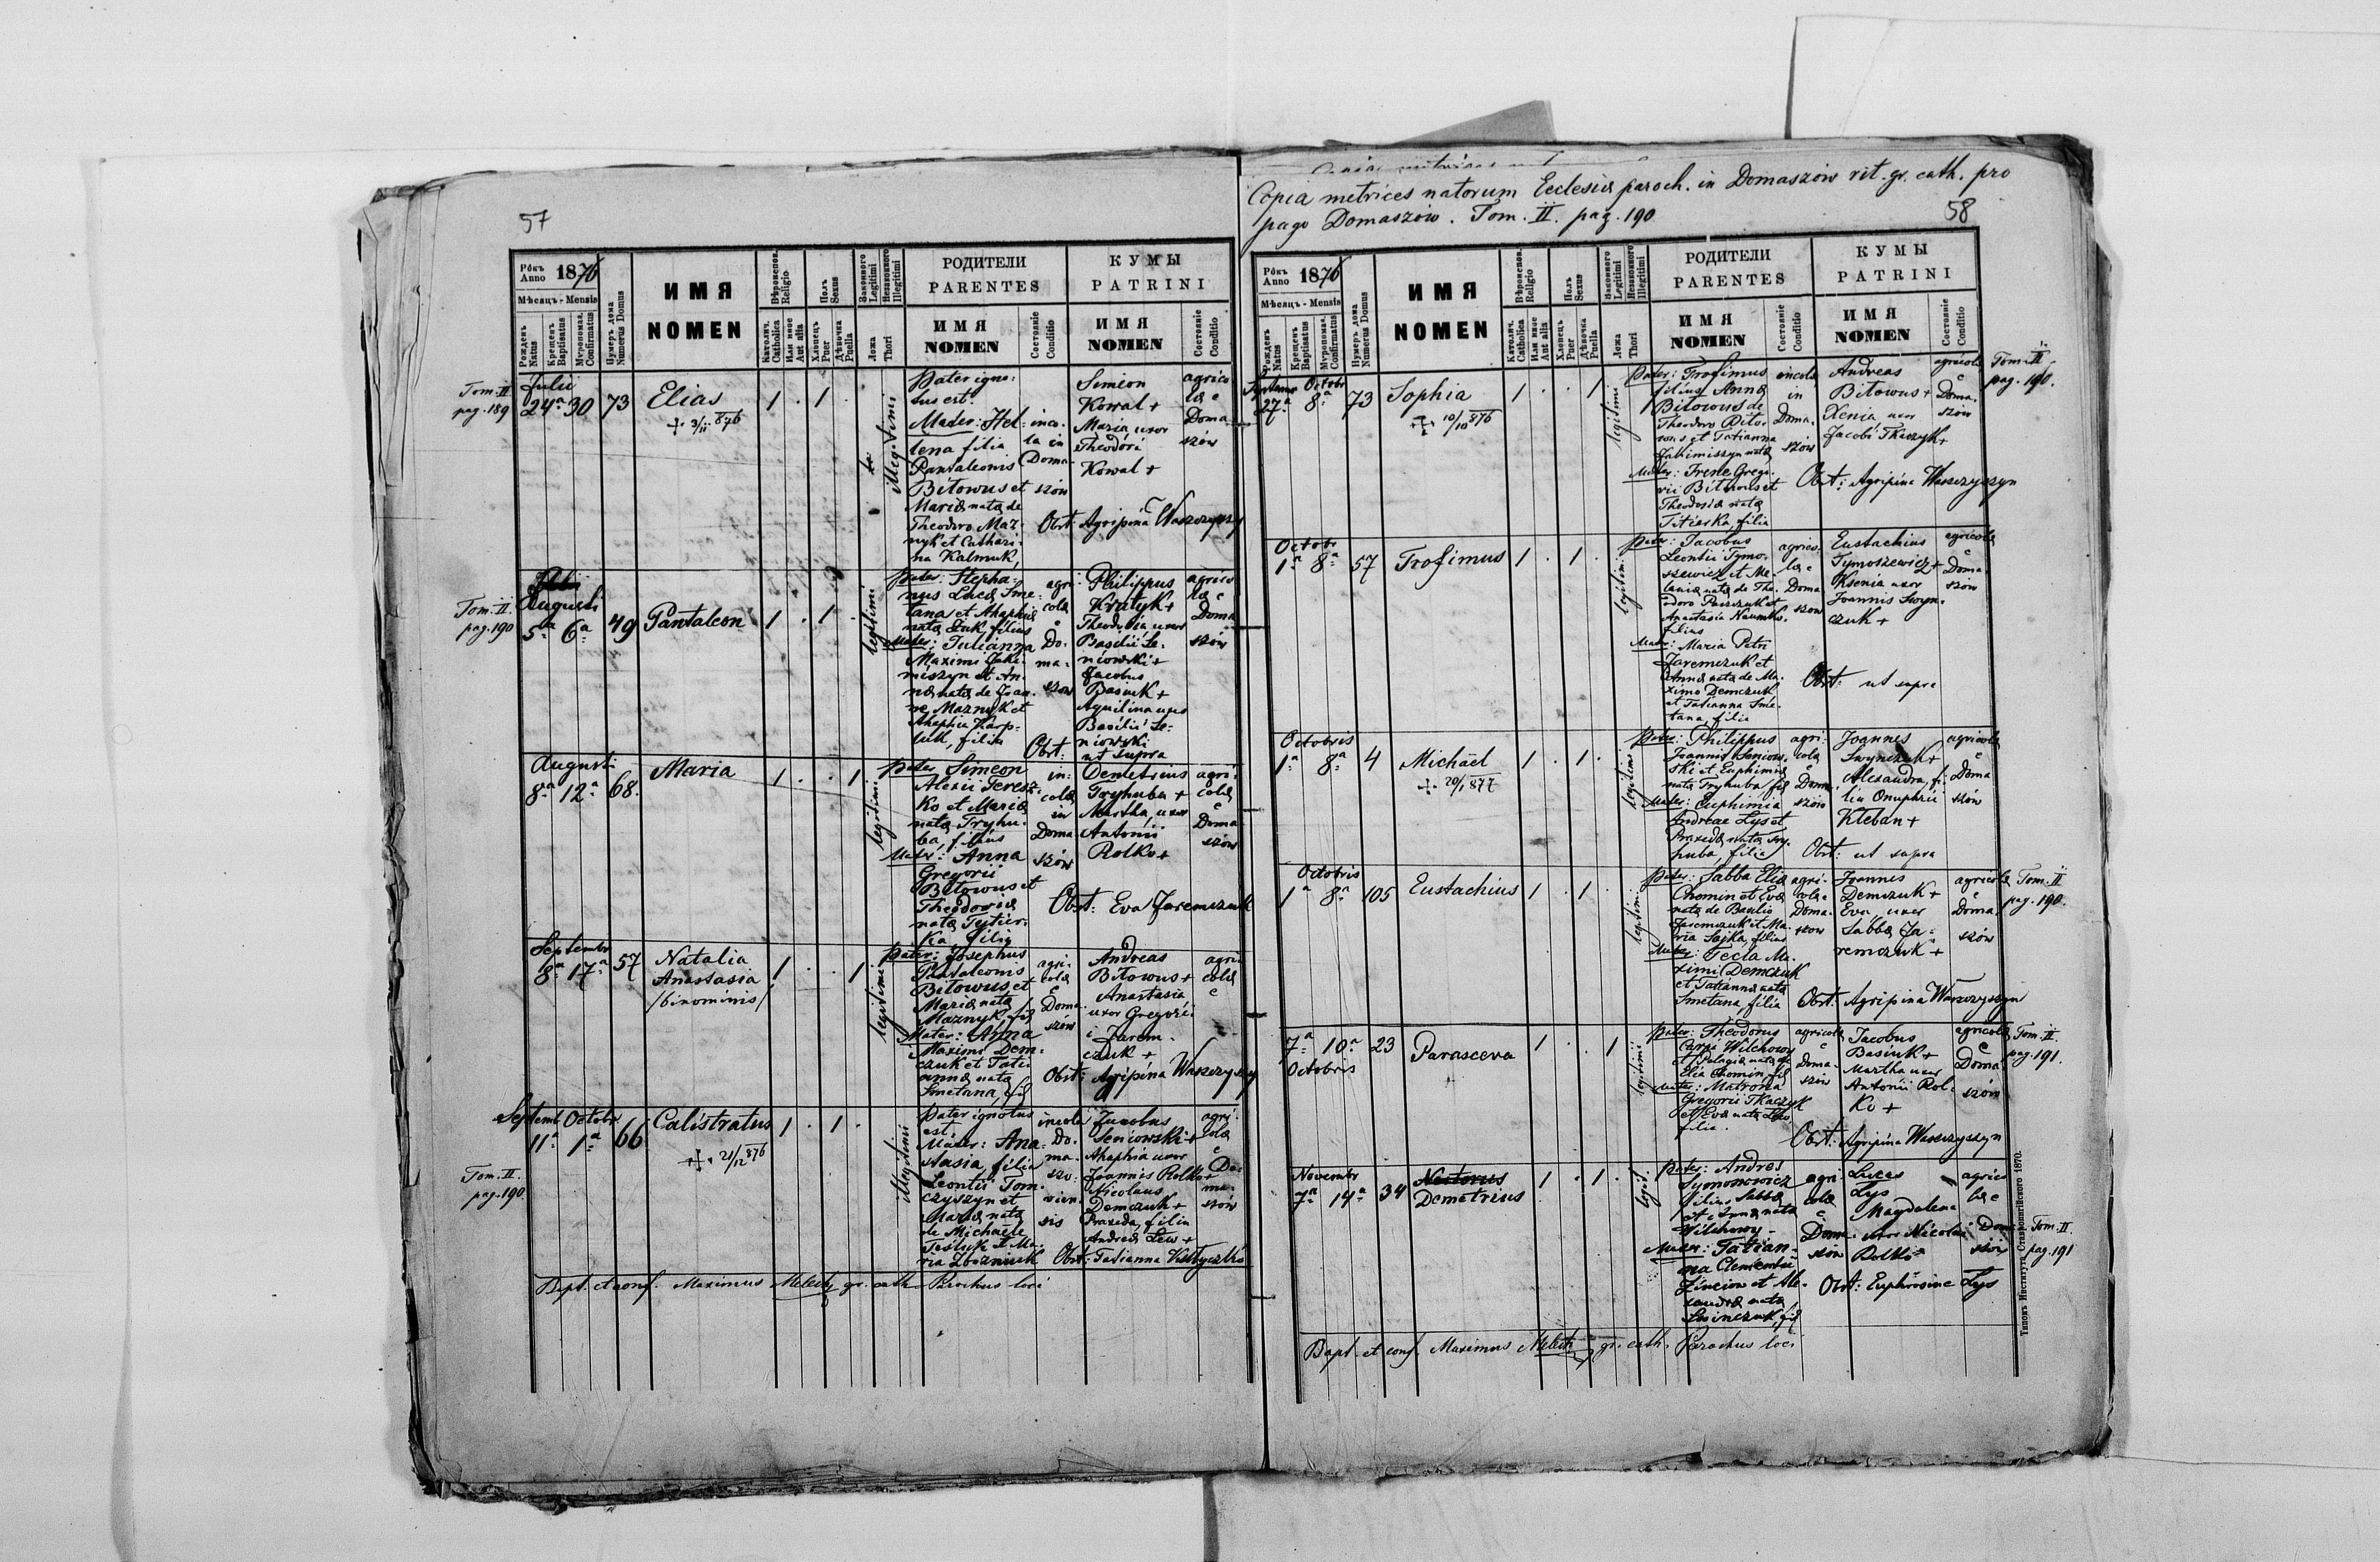 57
Рокъ Anno 1876
Мѣсяць - Mensis
Рожденъ Natus
Крещенъ Baptisatus
Мѵропомаз. Confirmatus
Нумеръ дома Numerus Domus
ИМЯ
NOMEN
Вѣроиспов. Religio
Католич. Catholica
Или иное Aut alia
Полъ Sexus
Хлопецъ Puer
Дѣвочка Puella
Законного Legitimi
Незаконного Illegitimi
Ложа Thori
РОДИТЕЛИ
PARENTES
ИМЯ
NOMEN
Состояніе Conditio
КУМЫ
PATRINI
ИМЯ
NOMEN
Состояніе Conditio
Tom. II
pag. 189
Julii
24a 30 73 Elias
+ 3/11 876
1 . 1 .
illegitimi
Pater igno-
tus est.
Mater: Hel-
lena filia
Pantaleonis
Bitowus et
Mariæ natæ de
Theodoro Maz-
nyk et Cathari-
na Kalmuk,
inco-
la in
Doma-
szów
Simeon
Kowal +
Maria uxor
Theodori
Kowal +
agrico
læ e
Doma
szów
Obst: Agripina Waszczyszy
Tom. II.
pag. 190
Augusti
5a 6a 49 Pantaleon
1 . 1 .
legitimi
Pater: Stepha-
nus Lucæ Sme-
tana et Ahaphiæ
natæ Luk, filius
Mater: Julianna
Maximi Jaki-
miszyn et An-
næ natæ de Joan-
ne Maznyk et
Ahaphia Karp-
luk, filia
agri-
colæ
e
Do-
ma-
szów
Philippus
Kratyk +
Theodosia uxor
Basilii Se-
niowski +
Jacobus
Basiuk +
Aquilina uxor
Basilii Se-
niowski
agrico
læ e
Doma
szów
Obst: ut supra
Augusti
8a 12a 68. Maria
1 . . 1
legitimi
Pater Simeon
Alexii Teresz-
ko et Mariæ
natæ Tryhu-
ba, filius
Mater: Anna
Gregorii
Bitowus et
Theodosiæ
natæ Tytier-
ka filia
in-
colæ
in
Doma
szów
Demetrius
Tryhuba +
Martha, uxor
Antonii
Rolko +
agri-
colæ
e
Doma
szów
Obst: Eva Jaremczuk
Septembr
8a 17a 57 Natalia
Anastasia
/binominis/
1 . . 1
legitimi
Pater: Josephus
Pantaleonis
Bitowus et
Mariæ natæ
Maznyk, fil
Mater: Anna
Maximi Dem-
czuk et Tati-
annæ natæ
Smetana, fil
agri-
colæ
e
Doma
szów
Andreas
Bitowus +
Anastasia
uxor Gregori-
i Jarem-
czuk +
agri
colæ
e
Obst: Agripina Waszczyszy
Septemb Octobr
11a 1a 66 Calistratus
+ 21/12 876
1 . 1 .
illegitimi
Pater ignotus
est.
Mater: Ana-
stasia, filia
Leontii Tom-
czyszyn et
Mariæ natæ
de Michaele
incola
Do-
ma-
szo-
vien-
sis
Jacobus
Seniowski +
Ahaphia uxor
Joannis Rolko +
Nicolaus
Demczuk +
Praxeda, filia
Andreæ Lew +
agri-
colæ
e
Do-
ma-
szów
Obst: Tatianna
Tom. II.
pag. 190
Bapt. et conf. Maximus Melech gr. cath. Parochus loci
Copia metrices natorum Ecclesiæ paroch. in Domaszów rit. gr. cath. pro
pago Domaszów. Tom. II. pag. 190
58
Рокъ Anno 1876
Мѣсяць - Mensis
Рожденъ Natus
Крещенъ Baptisatus
Мѵропомаз. Confirmatus
Нумеръ дома Numerus Domus
ИМЯ
NOMEN
Вѣроиспов. Religio
Католич. Catholica
Или иное Aut alia
Полъ Sexus
Хлопецъ Puer
Дѣвочка Puella
Законного Legitimi
Незаконного Illegitimi
Ложа Thori
РОДИТЕЛИ
PARENTES
ИМЯ
NOMEN
Состояніе Conditio
КУМЫ
PATRINI
ИМЯ
NOMEN
Состояніе Conditio
Septemb Octobr
27a 8a 73 Sophia
+ 10/10 876
1 . . 1
legitimi
Pater: Trofimus
filius Annæ
Bitowus de
Theodoro Bito-
wus et Tatianna
Jakimiszyn natæ
Mater: Irene Grego-
rii Bitowus et
Theodosiæ natæ
Titierka, filia
incolæ
in
Doma-
szów
Andreas
Bitowus +
Xenia uxor
Jacobi Tkaczyk +
agricolæ
e
Doma-
szów
Obst: Agripina Waszczyszyn
Tom. II
pag. 190.
Octobr
1a 8a 57 Trofimus
1 . 1 .
legitimi
Pater: Jacobus
Leontii Tymo-
szewicz et Me-
laniæ natæ de The-
odoro Paszczuk et
Anastasia Naumko,
filius
Mater: Maria Petri
Jaremczuk et
Annæ natæ de Ma-
ximo Demczuk
et Tatianna Sme-
tana, filia
agrico-
læ e
Doma
szów
Eustachius
Tymoszewicz +
Ksenia uxor
Joannis Swyn-
czuk +
agricolæ
e
Doma
szów
Obst: ut supra
Octobris
1a 8a 4 Michaël
+ 20/1 877
1 . 1 .
legitimi
Pater: Philippus
Joannis Seniow-
ski et Euphimiæ
natæ Tryhuba fil
Mater: Euphimia
Andreae Lys et
Praxedæ natæ Try-
huba, filia
agri-
colæ
e
Doma-
szów
Joannes
Swynczuk +
Alexandra, fi-
lia Onuphrii
Kleban +
agricolæ
e
Doma
szów
Obst: ut supra
Octobris
1a 8a 105 Eustachius
1 . 1 .
legitimi
Pater: Sabba Eliæ
Chomin et Evæ
natæ de Basilio
Jaremczuk et Ma-
ria Sajka, filius
Mater: Tecla Ma-
ximi Demczuk
et Tatiannæ natæ
Smetana, filia
agri-
colæ e
Doma-
szów
Joannes
Demczuk +
Eva uxor
Sabbæ Ja-
remczuk +
agricolæ
e
Doma
szów
Obst: Agripina Waszczyszyn
Tom. II
pag. 190.
7a 10a 23 Parasceva
Octobris
1 . . 1
legitimi
Pater: Theodorus
Carpi Wilchowy
et Pelagiæ natæ de
Elia Chomin, fil
Mater: Matrona
Gregorii Tkaczyk
et Evæ natæ
filia.
agricolæ
e
Doma-
szów
Jacobus
Basiuk +
Martha uxor
Antonii Rol-
ko +
agricolæ
e
Doma
szów
Obst: Agripina Waszczyszyn
Tom. II.
pag. 191.
Novembr
7a 14a 34 Nestorus
Demetrius
1 . 1 .
legit.
Pater: Andreas
Symonowicz
filius Sabbæ
et Annæ natæ
Wilchowy
Mater: Tatian-
na Clementii
Zincion et Ale-
xandræ natæ
Swinczuk, fil
agri-
colæ
e
Doma-
szów
Lucas
Lys
Magdalena
uxor Nicolai
Rolko
agrico
læ e
Doma
szów
Obst: Euphrosine Lys
Tom. II.
pag. 191
Bapt. et conf. Maximus Melech gr. cath. Parochus loci
Типомъ Института Ставропигійского 1870.